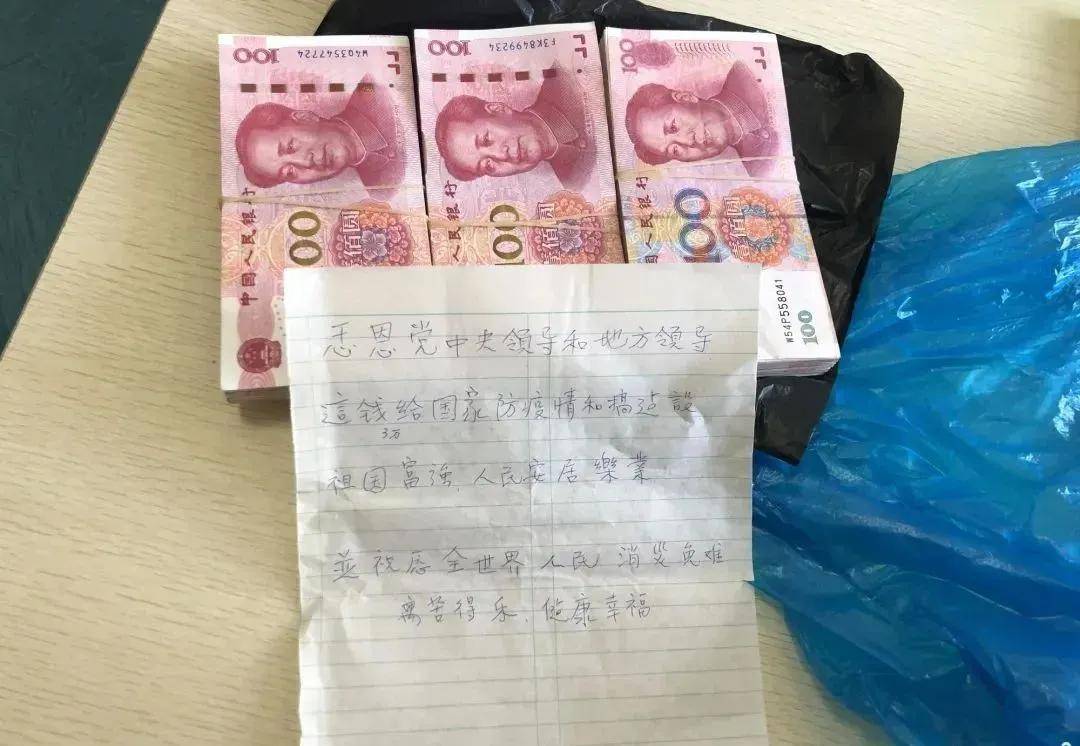 100 W4Q3547724
100 F3K8499234
100
中国人民银行
00
壹佰圆
人民银行
100
壹佰圆
中国人民银行
100
W54P558041
100
恩党中央领导和地方领导
這钱给国家防疫情和搞建設
3万
祖国富強.人民安居樂業
並祝愿全世界人民消災免难
离苦得乐.健康幸福